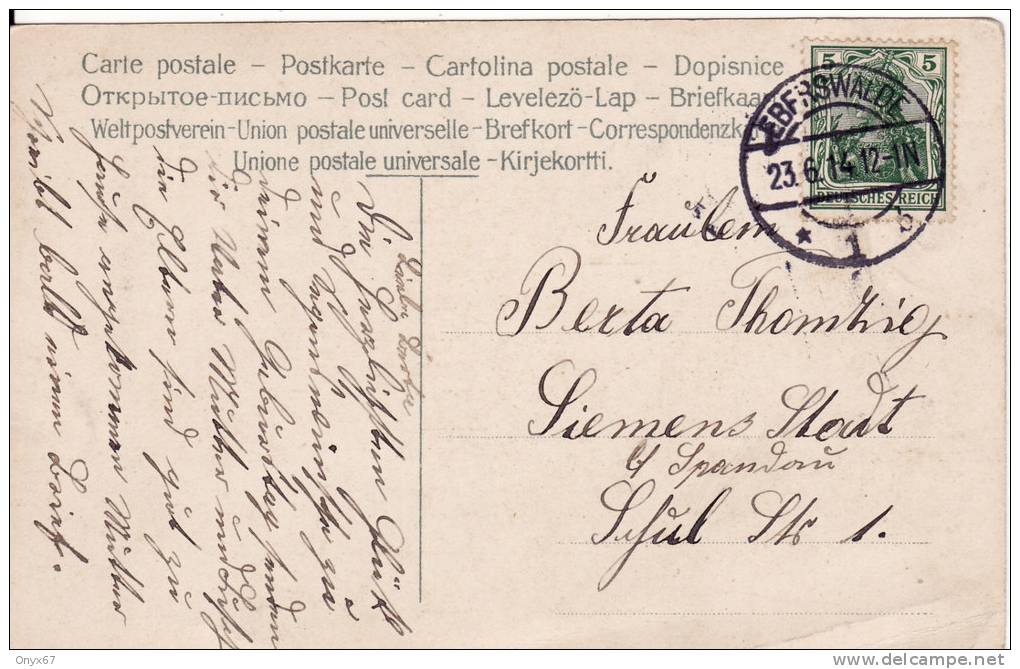 Carte postale – Postkarte – Cartolina postale – Dopisnice
Открытое-письмо – Post card – Levelező-Lap – Briefkaa
Weltpostverein - Union postale universelle - Brefkort - Correspondenzk
Unione postale universale - Kirjekortti.
5 5
DEUTSCHES REICH
EBERSWALDE
23.6.14.12-1N
* 1 b
Fräulein
Berta Thomzig
Siemens Stadt
b/ Spandau
Schul Str 1.
Liebe
Die herzlichsten Glück
und Segenswünsche zu
deinem Geburtstag senden
dir Vater Mutter und
die Eltern sind gut zu
Hause angekommen Mutter
schreibt bald einen Brief.
Onyx67
www.delcampe.net